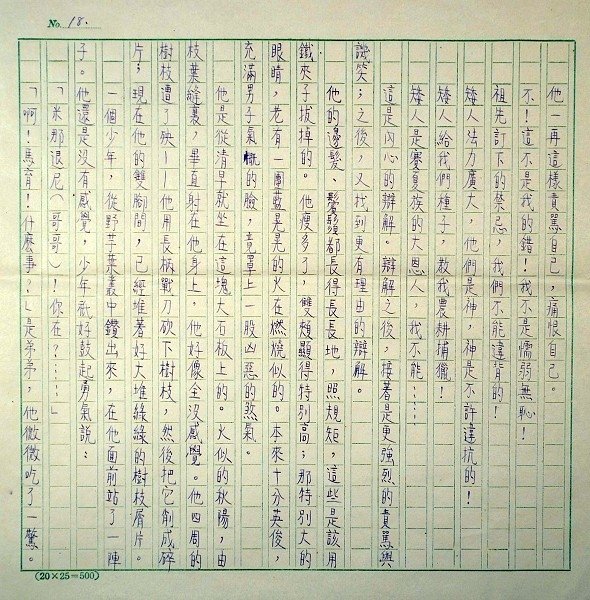 No. 18.
他一再這樣責罵自己,痛恨自己。
不!這不是我的錯!我不是懦弱無恥!
祖先訂下的禁忌,我們不能違背的!
矮人法力廣大,他們是神,神是不許違抗的!
矮人給我們種子,教我農耕捕獵!
矮人是賽夏族的大恩人,我不能……
這是內心的辯解。辯解之後,接著是更強烈的責罵與
譏笑;之後,又找到更有理由的辯解。
他的邊髮、鬢鬚都長得長長地,照規矩,這些是該用
鐵夾子拔掉的。他瘦多了,雙頰顯得特別高;那特別大的
眼睛,老有一團熒晃晃的火在燃燒似的。本來十分英俊,
充滿男子氣慨的臉,竟罩上一股凶惡的煞氣。
他是從清早就坐在這塊大石板上的。火似的秋陽,由
枝葉縫裏,畢直射在他身上,他好像全沒感覺。他四周的
樹枝遭了殃——他用長柄戰刀砍下樹枝,然後把它削成碎
片;現在他的雙腳間,已經堆著好大堆綠綠的樹枝屑片。
一個少年,從野芋葉叢中鑽出來,在他面前站了一陣
子。他還是沒有感覺,少年祇好鼓起勇氣說:
「米那浪尼(哥哥)!你在?……」
「啊!馬育!什麼事?!」是弟弟,他微微吃了一驚。
(20×25=500)